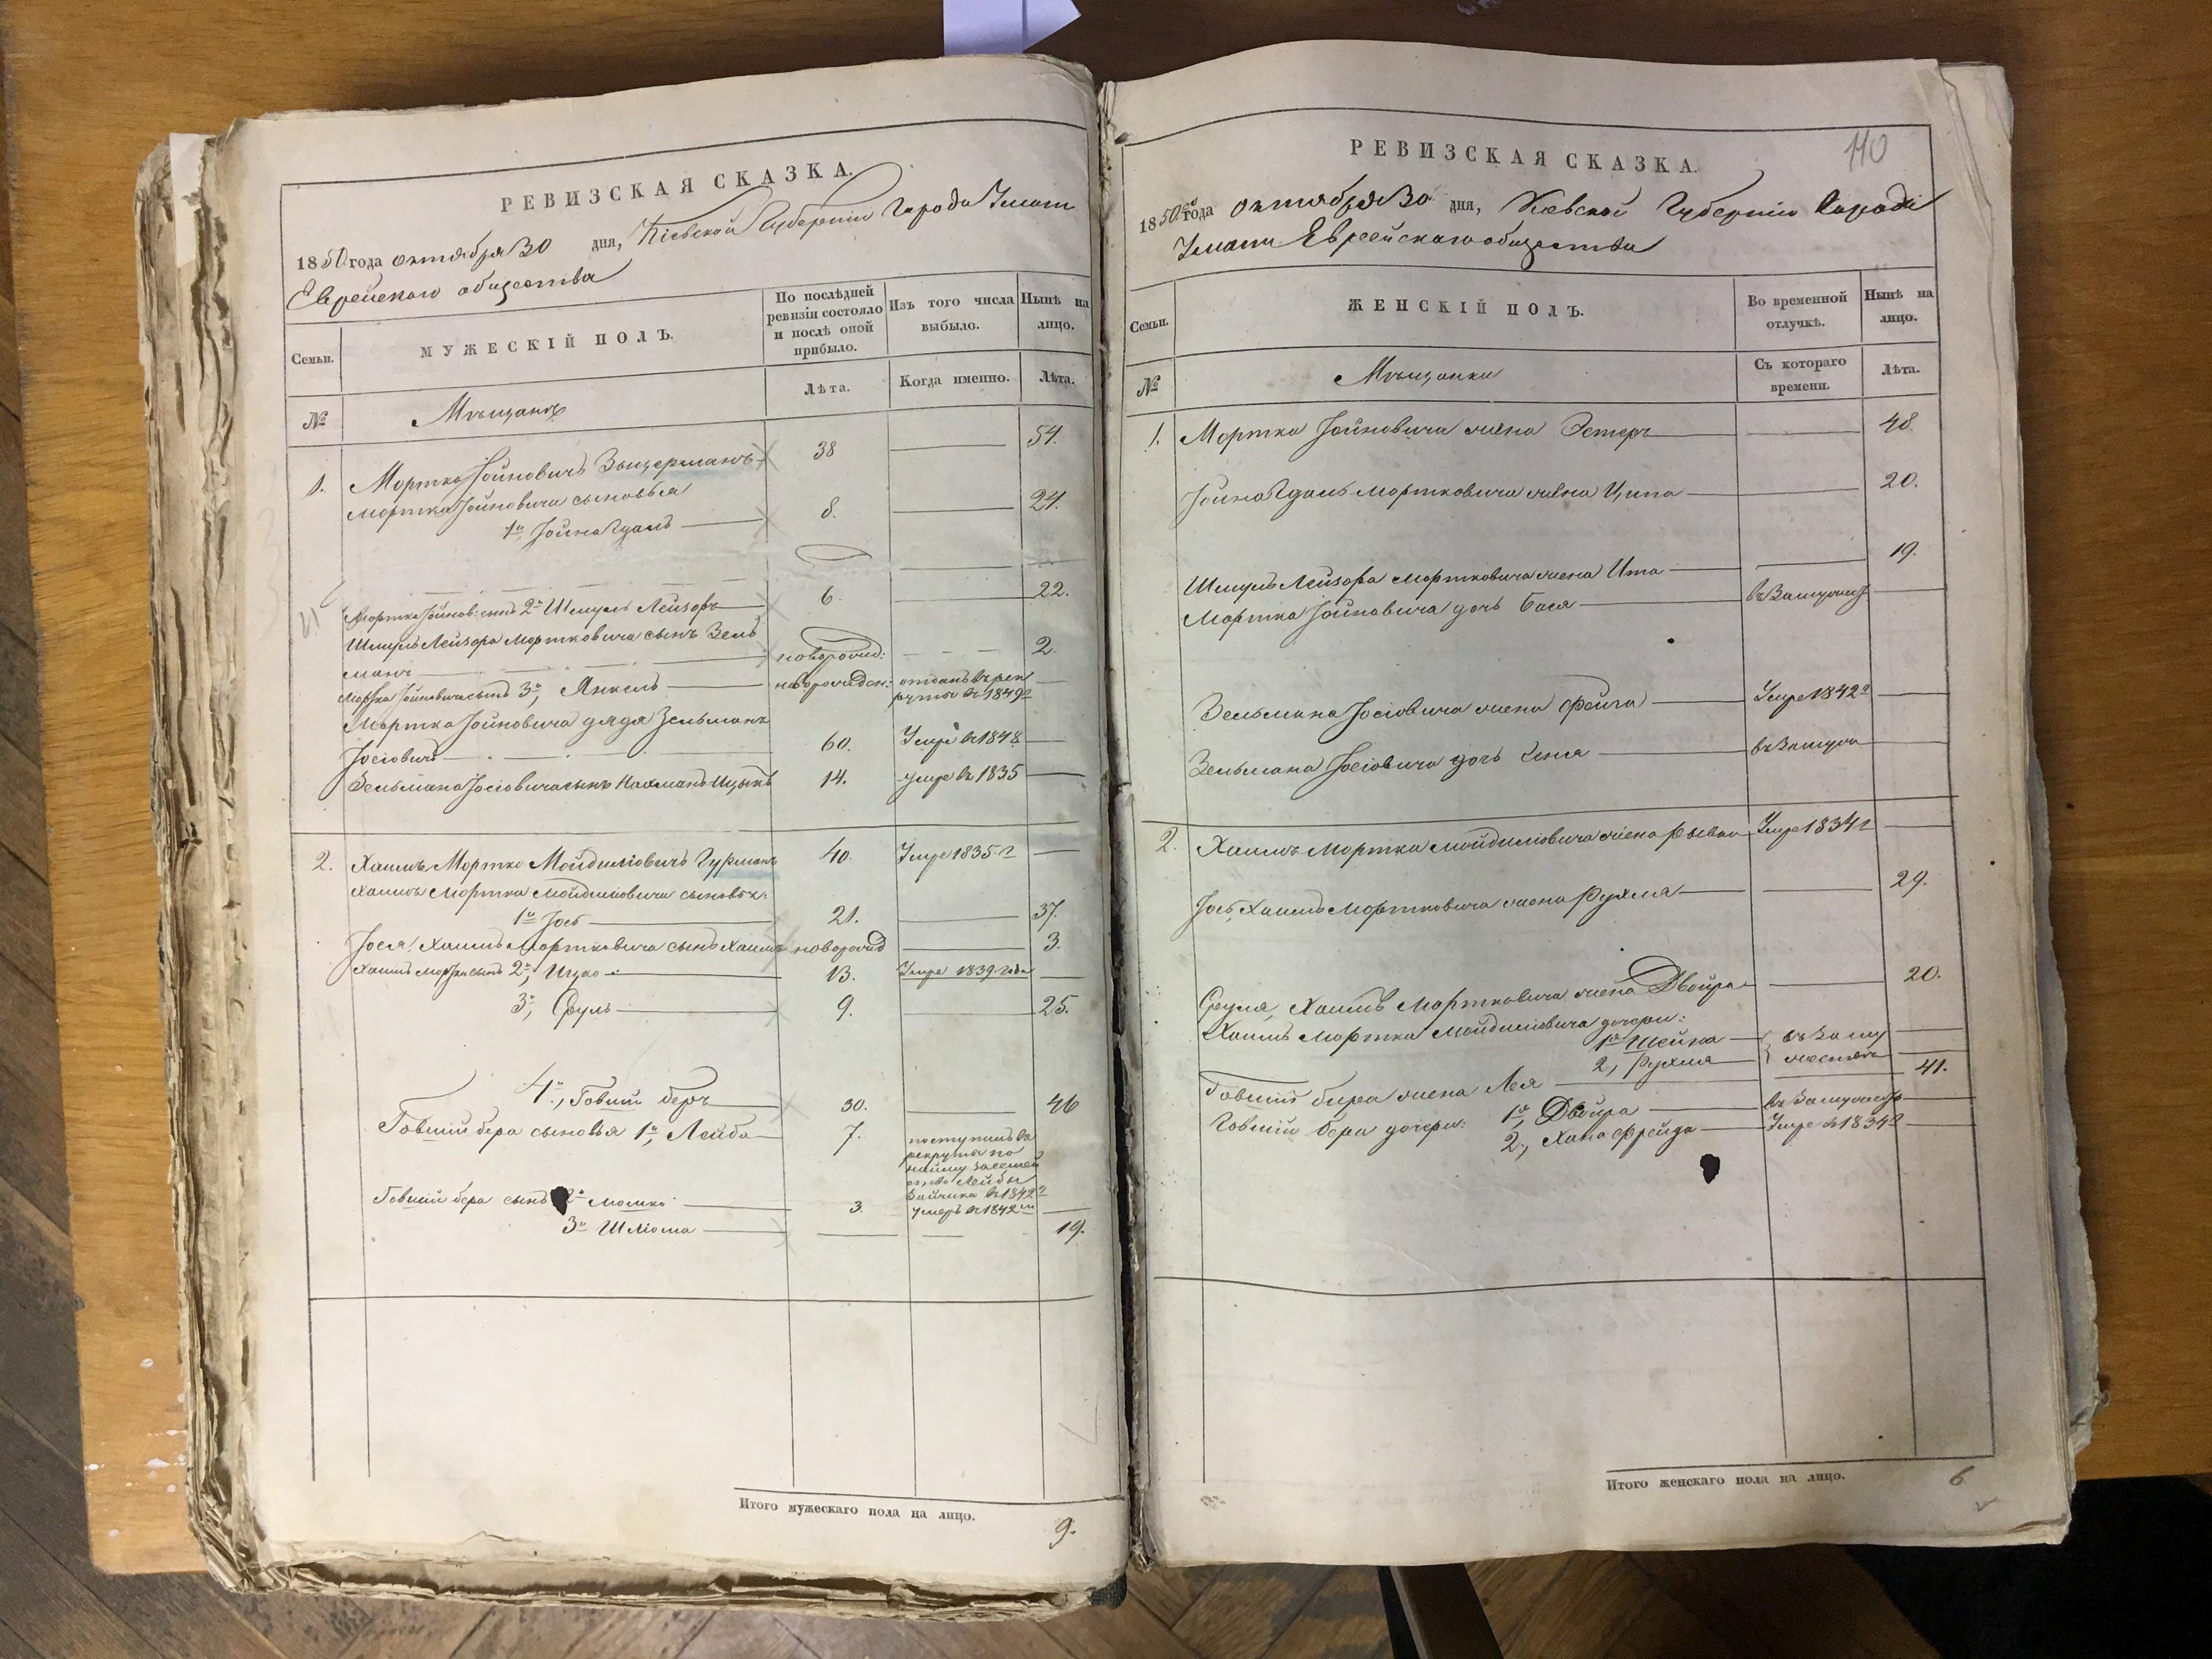 РЕВИЗСКАЯ СКАЗКА.
1850 года октября 30 дня, Кіевской Губерніи Города Умани
Еврейскаго общества
Семьи.
МУЖЕСКІЙ ПОЛЪ.
По послѣдней ревизіи состояло и послѣ оной прибыло.
Изъ того числа выбыло.
Нынѣ на лицо.
№
Мѣщанъ
Лѣта.
Когда именно.
Лѣта.
1. Мортко Іойновичъ 38 54.
Мортка Іойновича сыновья
1й Іойна 8. 24.
Мортка Іойнов: сынъ 2й Шмуль Лейзоръ 6. 22.
Шмуль Лейзора Мортковича сынъ Зель
манъ новорожд: 2.
Мортка Іойновича сынъ 3й, Янкель новорожден: отданъ въ рек
руты въ 1849г
Мортка Іойновича дядя Зельманъ
Іосіовичъ 60. Умре въ 1848
Зельмана Іосіовича сынъ Нахманъ Ицыкъ 14. умре въ 1835
2. Хаимъ Мортко Гурманъ 40. Умре 1835 г
Хаимъ Мортка сыновья:
1й Іось 21. 37.
Іося, Хаимъ Мортковича сынъ Хаимъ новорожд 3.
сынъ 2й, 13. Умре 1839 года
3й, Сруль 9. 25.
4й, Говшій беръ 30. 46
Говшій бера сыновья 1й, Лейба 7. поступилъ въ
рекруты по
найму
Лейбы
Зайчика въ 1842г
Говшій бера сынъ 2й Мошко 3. умеръ въ 1842
3й Шліома 19.
Итого мужескаго пола на лицо.
9.
110
РЕВИЗСКАЯ СКАЗКА.
1850го года октября 30 дня, Кіевской Губерніи Города
Умани Еврейскаго общества
Семьи.
ЖЕНСКІЙ ПОЛЪ.
Во временной отлучкѣ.
Нынѣ на лицо.
№
Мѣщанки
Съ котораго времени.
Лѣта.
1. Мортка Іойновича жена Эстеръ 48.
Мортковича жена Ципа 20.
Шмуль Лейзора Мортковича жена Ита 19.
Мортка Іойновича дочь Бася въ Замужест
Зельмана Іосіовича жена Фейга Умре 1842г
Зельмана Іосіовича дочь въ Замуж
2. Хаимъ Мортка жена Рывка Умре 1834 г
Іось, Хаимъ Мортковича жена Рухля 29.
Сруля, Хаимъ Мортковича жена Двойра 20.
Хаимъ Мортка дочери:
1я Шейна въ Заму
2, Рухля жествѣ
Говшій бера жена Лея 41.
Говшій бера дочери: 1я, Двойра въ Замужест
2., Хана Фрейда Умре въ 1834г
Итого женскаго пола на лицо.
6